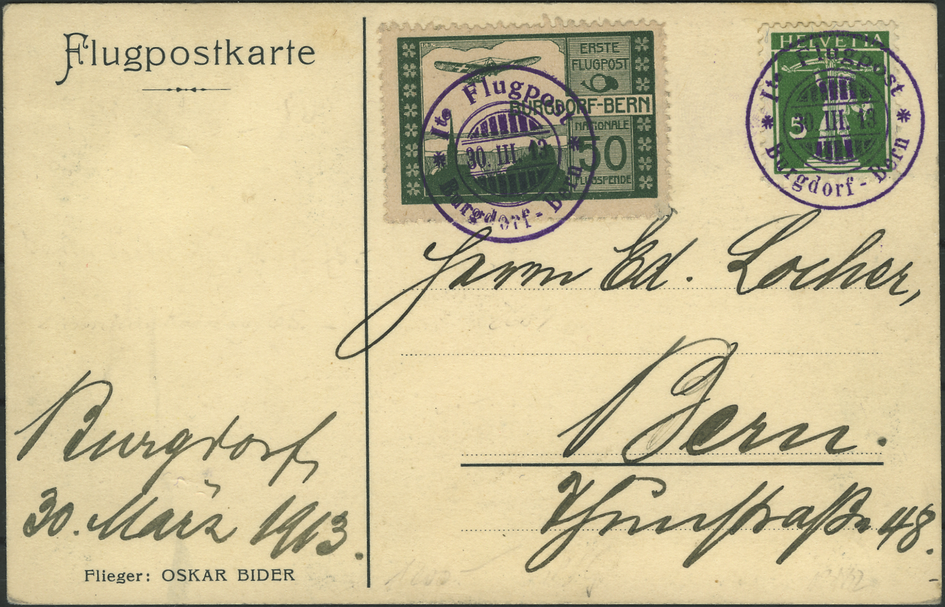 Flugpostkarte
ERSTE
FLUGPOST
BURGDORF-BERN
NATIONALE
50
FLUGSPENDE
Ite Flugpost
30. III. 13
Burgdorf - Bern
HELVETIA
5
Ite Flugpost
30. III. 13
Burgdorf - Bern
Herrn Ed. Locher,
Bern.
Thunstraße 48.
Burgdorf,
30. März 1913.
Flieger: OSKAR BIDER